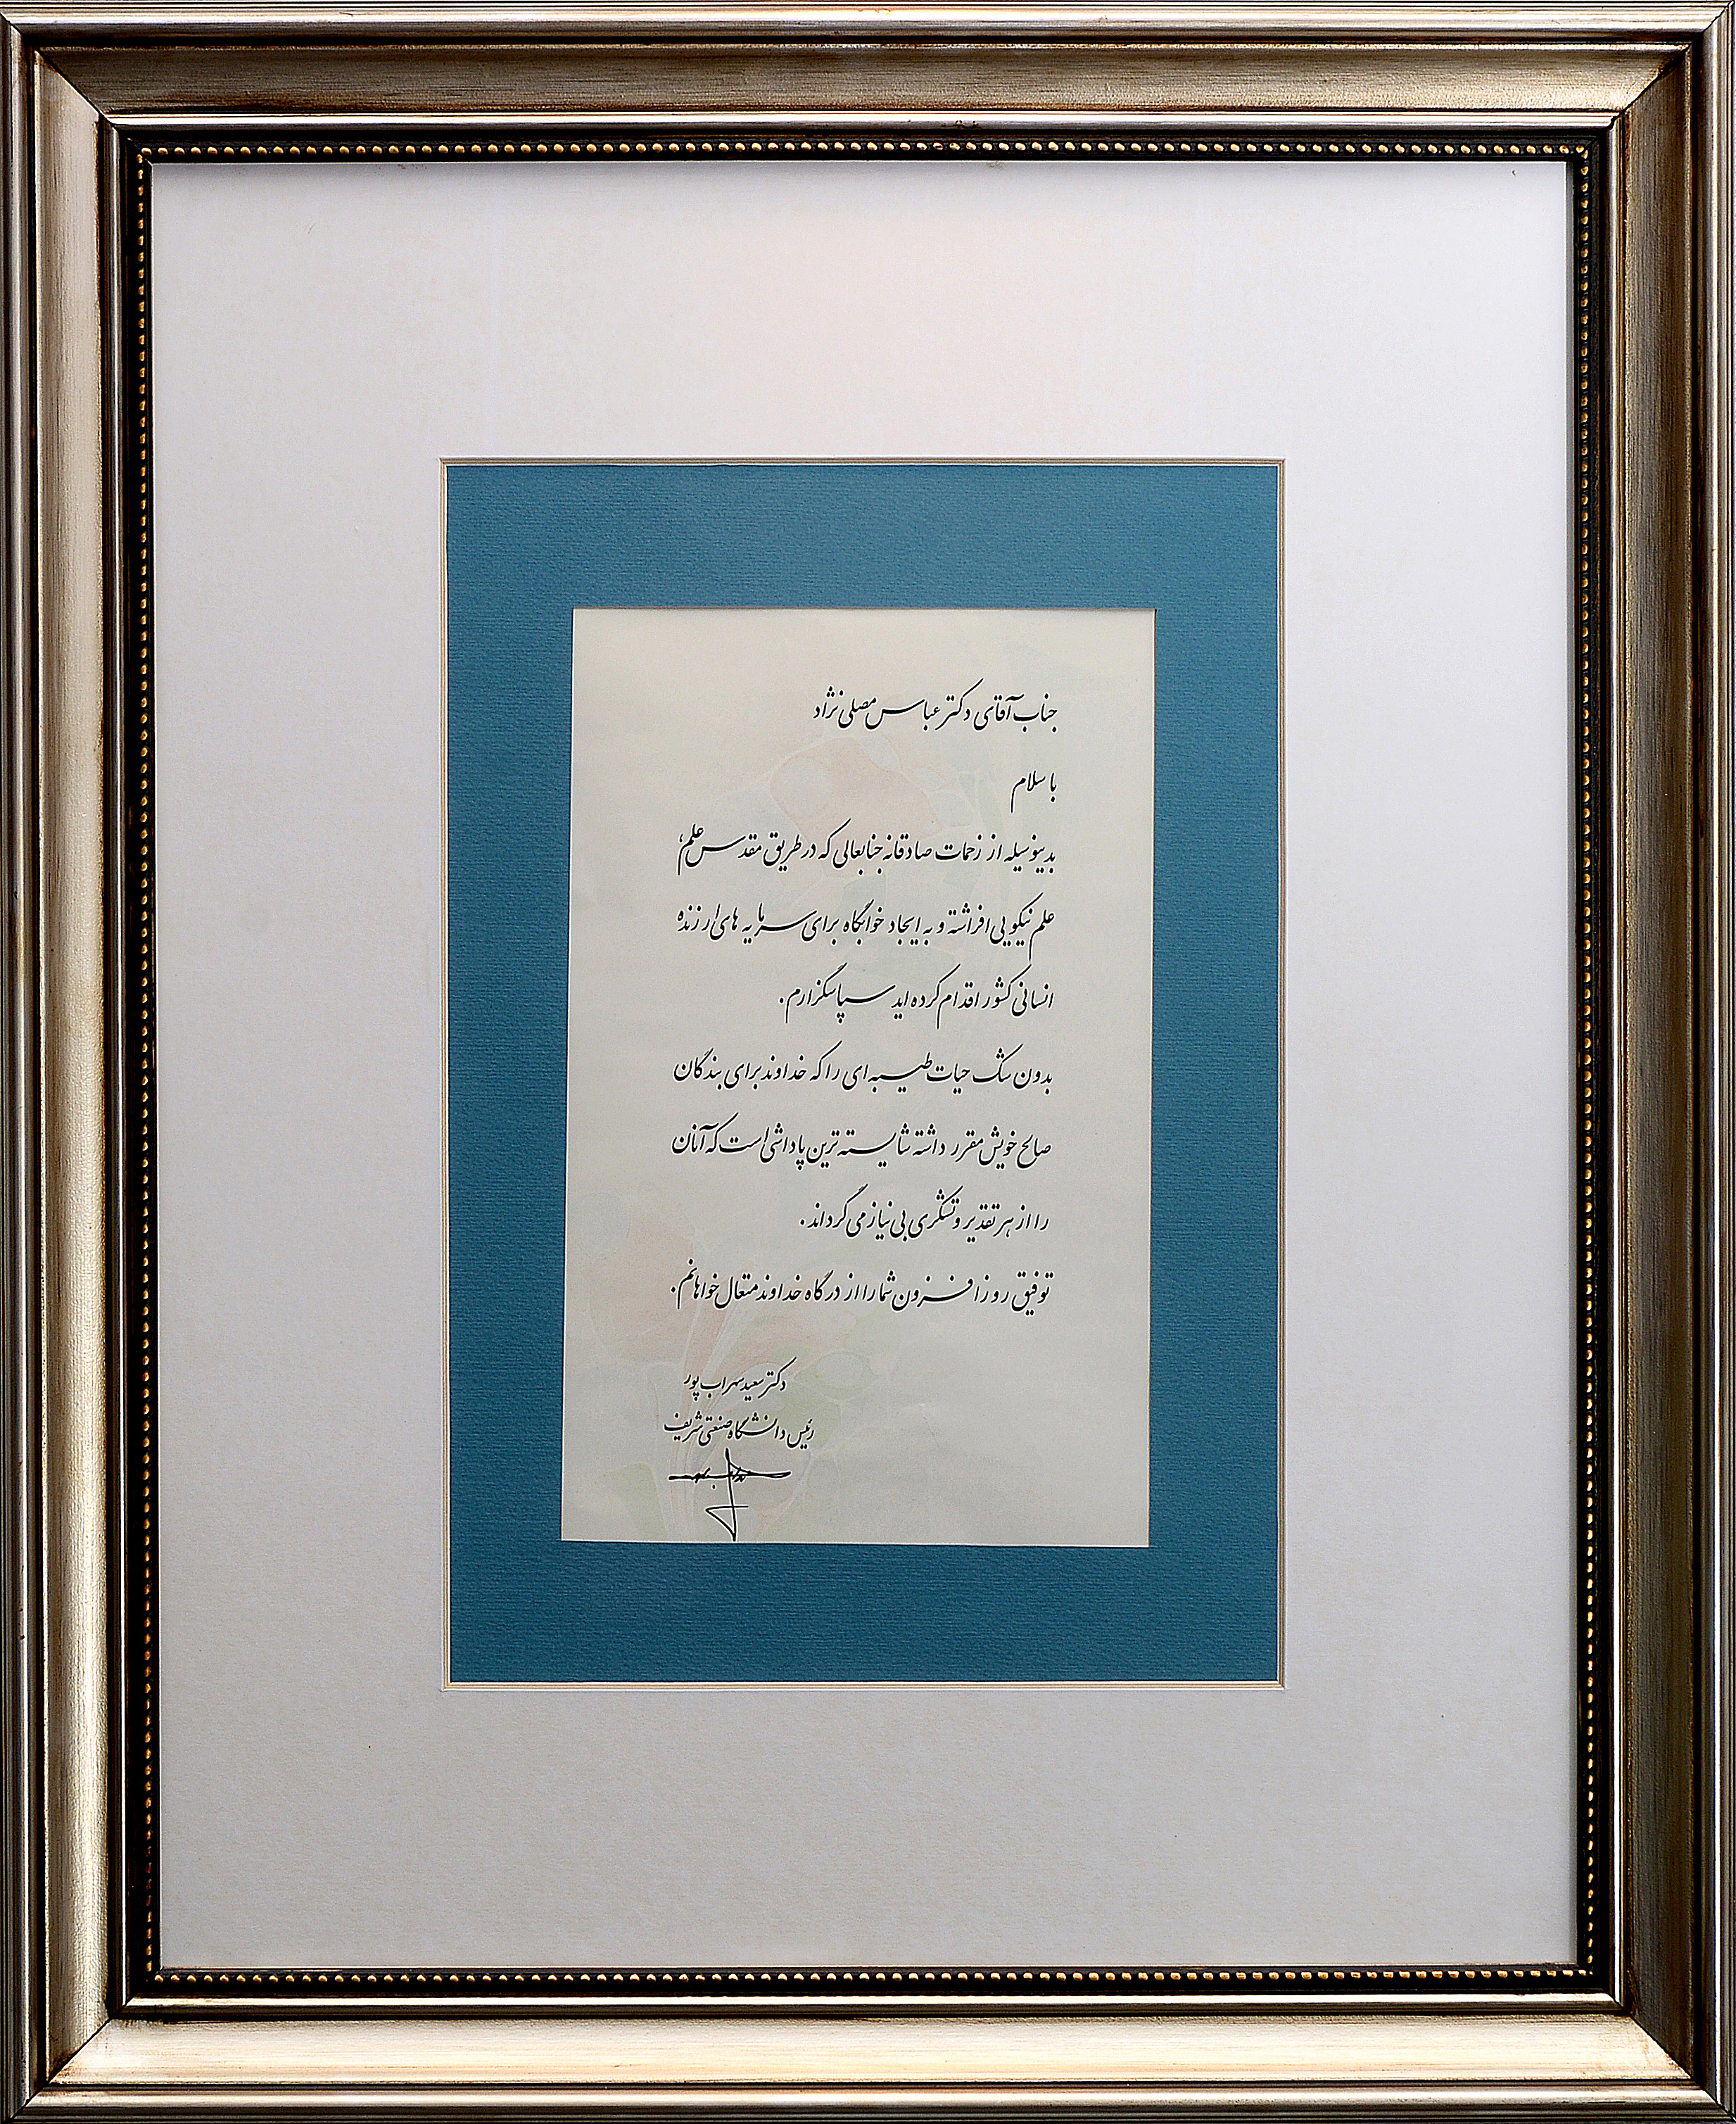 جناب آقای دکتر عباس مصلی نژاد
با سلام
بدینوسیله از زحمات صادقانه جنابعالی که در طریق مقدس علم،
علم نیکویی افراشته و به ایجاد خوابگاه برای سرمایه های ارزنده
انسانی کشور اقدام کرده اید سپاسگزارم.
بدون شک حیات طیبه ای را که خداوند برای بندگان
صالح خویش مقرر داشته شایسته ترین پاداشی است که آنان
را از هر تقدیر و تشکری بی نیاز می گرداند.
توفیق روز افزون شما را از درگاه خداوند متعال خواهانم.
دکتر سعید سهراب پور
رئیس دانشگاه صنعتی شریف